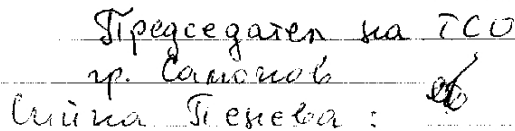 Председател на ТСО
гр. Самоков
Пенева: